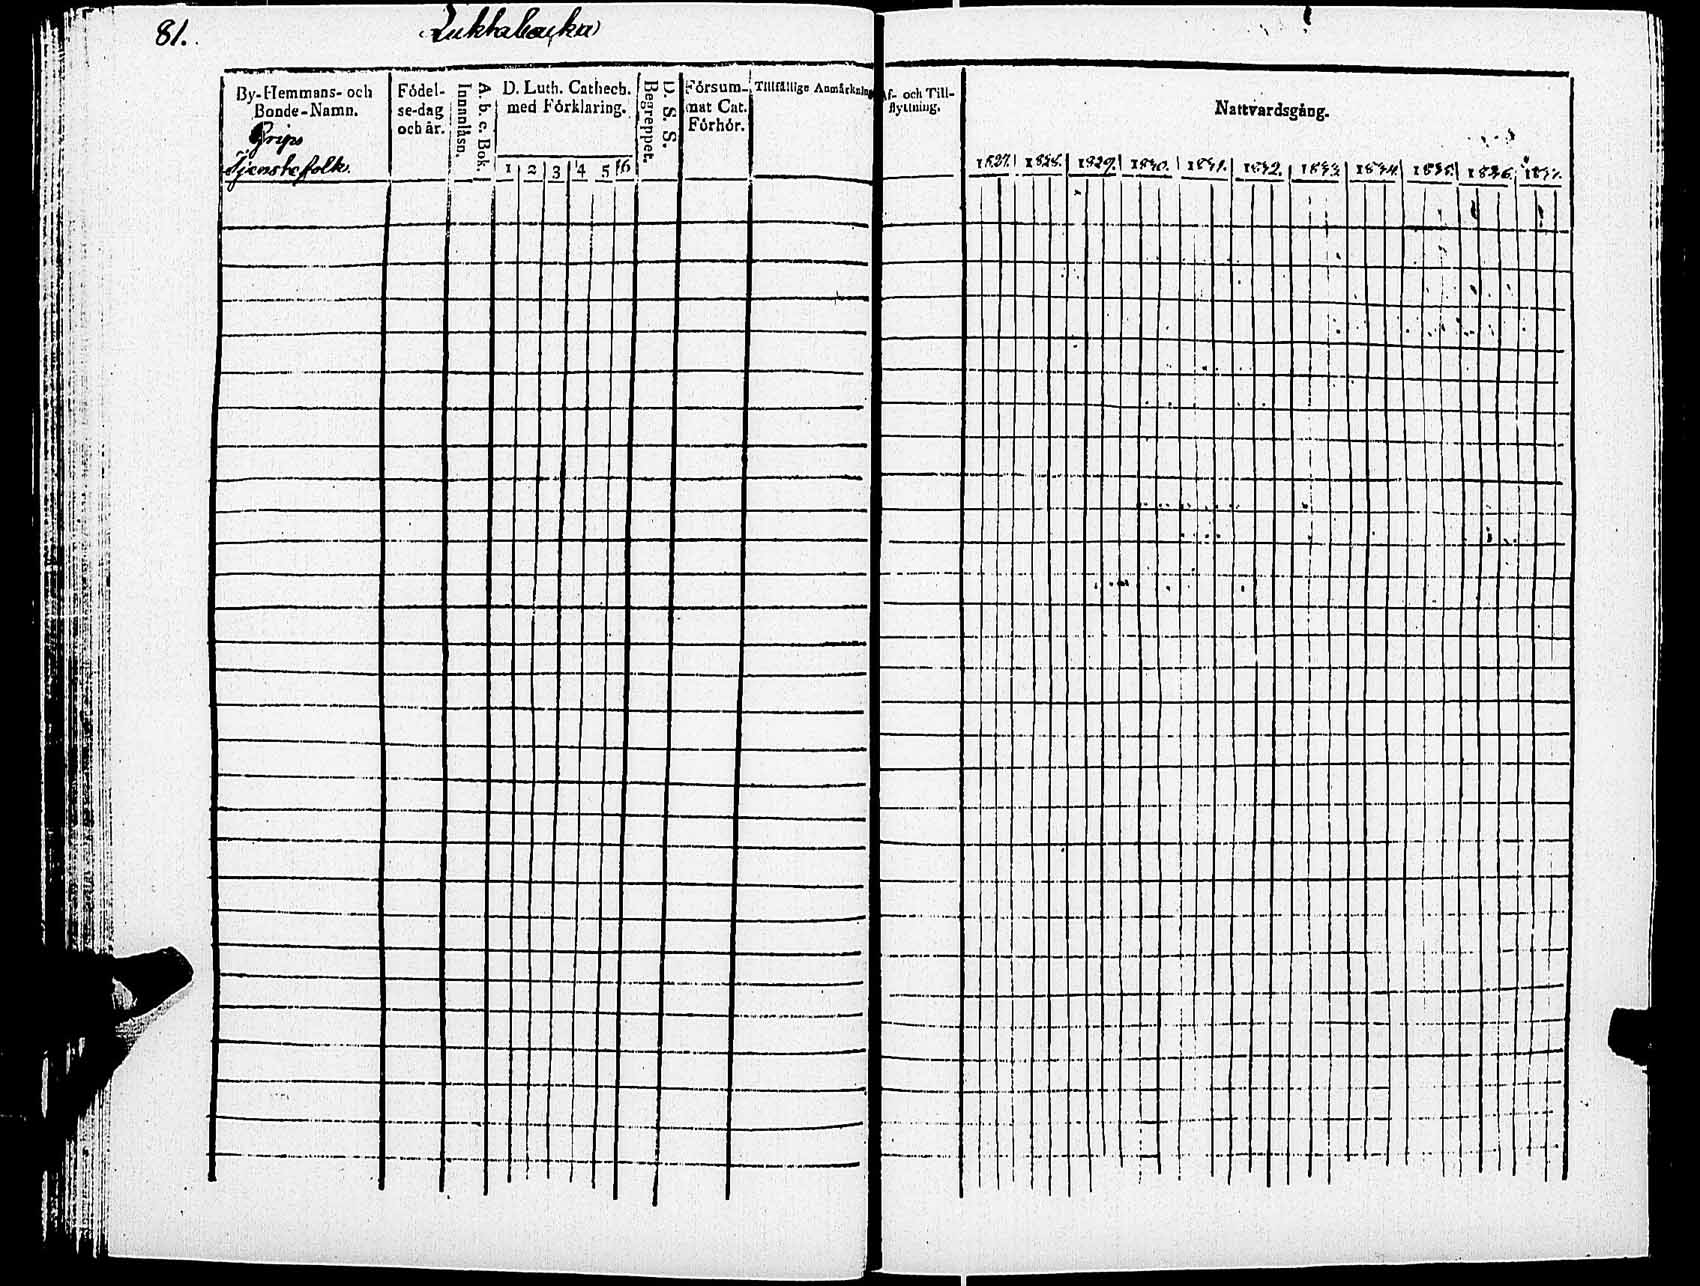 81.
By-Hemmans- och
Bonde-Namn.
Grips
Tjenstefolk.
Födel-
se-dag
och år.
Innanläsn.
A. b. c. Bok.
D. Luth. Cathech.
med Förklaring.
1 2 3 4 5 6
Begreppet.
D. S. S.
Försum-
mat Cat.
Förhör.
Tillfällige Anmärkning
Af- och Till-
flyttning.
Nattvardsgång.
1827. 1828. 1829. 1830. 1831. 1832. 1833. 1834. 1835. 1836. 1837.